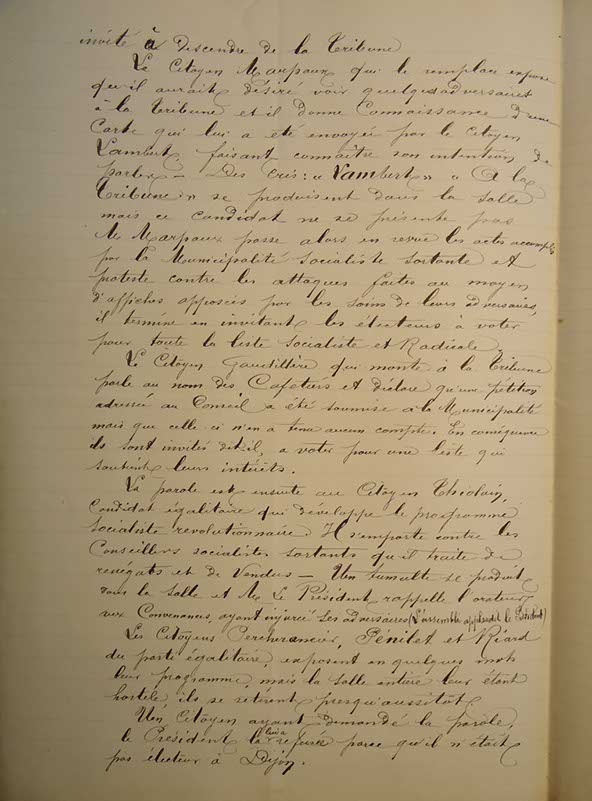 invité à descendre de la Tribune
Le Citoyen Marpaux qui le remplace expose
qu'il aurait désiré voir quelques adversaires
à la Tribune et il donne connaissance d'une
Carte qui lui a été envoyée par le Citoyen
Vambert, faisant connaître son intention de
parler – Des cris : « Vambert » « A la
Tribune » se produisent dans la salle
mais ce candidat ne se présente pas
M. Marpaux passe alors en revue les actes accomplis
par la Municipalité socialiste sortante et
proteste contre les attaques faites au moyen
d'affiches apposées par les soins de leurs adversaires,
il termine en invitant les électeurs à voter
pour toute la liste socialiste et Radicale.
Le Citoyen Gaudillère qui monte à la Tribune
parle au nom des Cafetiers et déclare qu'une pétition
adressée au Conseil a été soumise à la Municipalité
mais que celle-ci n'en a tenu aucun compte. En conséquence
ils sont invités dit-il, a voter pour une liste qui
soutient leurs intérêts.
La parole est ensuite au Citoyen
Candidat égalitaire qui développe le programme
socialiste révolutionnaire. Il s'emporte contre les
Conseillers socialistes sortants qu'il traite de
renégats et de Vendus – Un tumulte se produit
dans la salle et M. Le Président rappelle l'orateur
aux Convenances, ayant injurié ses adversaires (L'assemblée applaudit le Président)
Les Citoyens Pénilet et Riard
du parti égalitaire, exposent en quelques mots
leur programme, mais la salle entière leur étant
hostile, ils se retirent presqu'aussitôt.
Un Citoyen ayant demandé la parole,
le Président la lui a refusée parce qu'il n'était
pas électeur à Dijon.